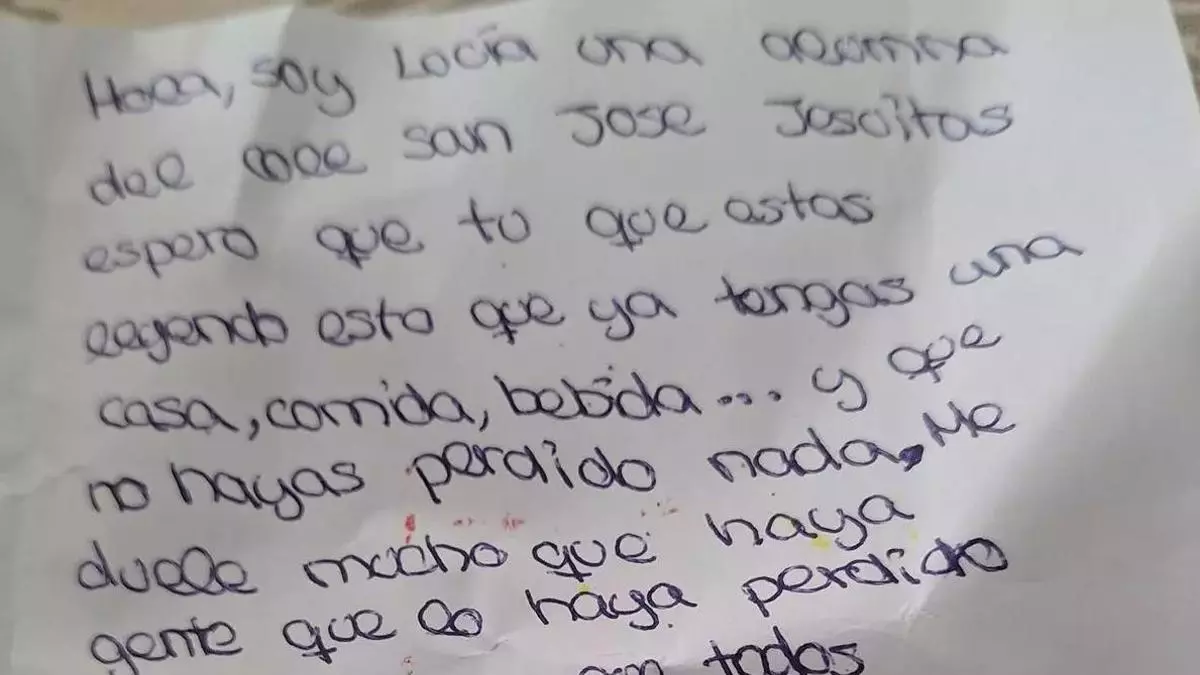 Hola, soy Locía una alumna
del cole san Jose Jesuitas
espero que tu que astas
legendo esto que ya tengas una
casa, comida, bebida... y que
no hayas perdido nada. Me
duele mucho que haya
gente que lo haya perdido
todos